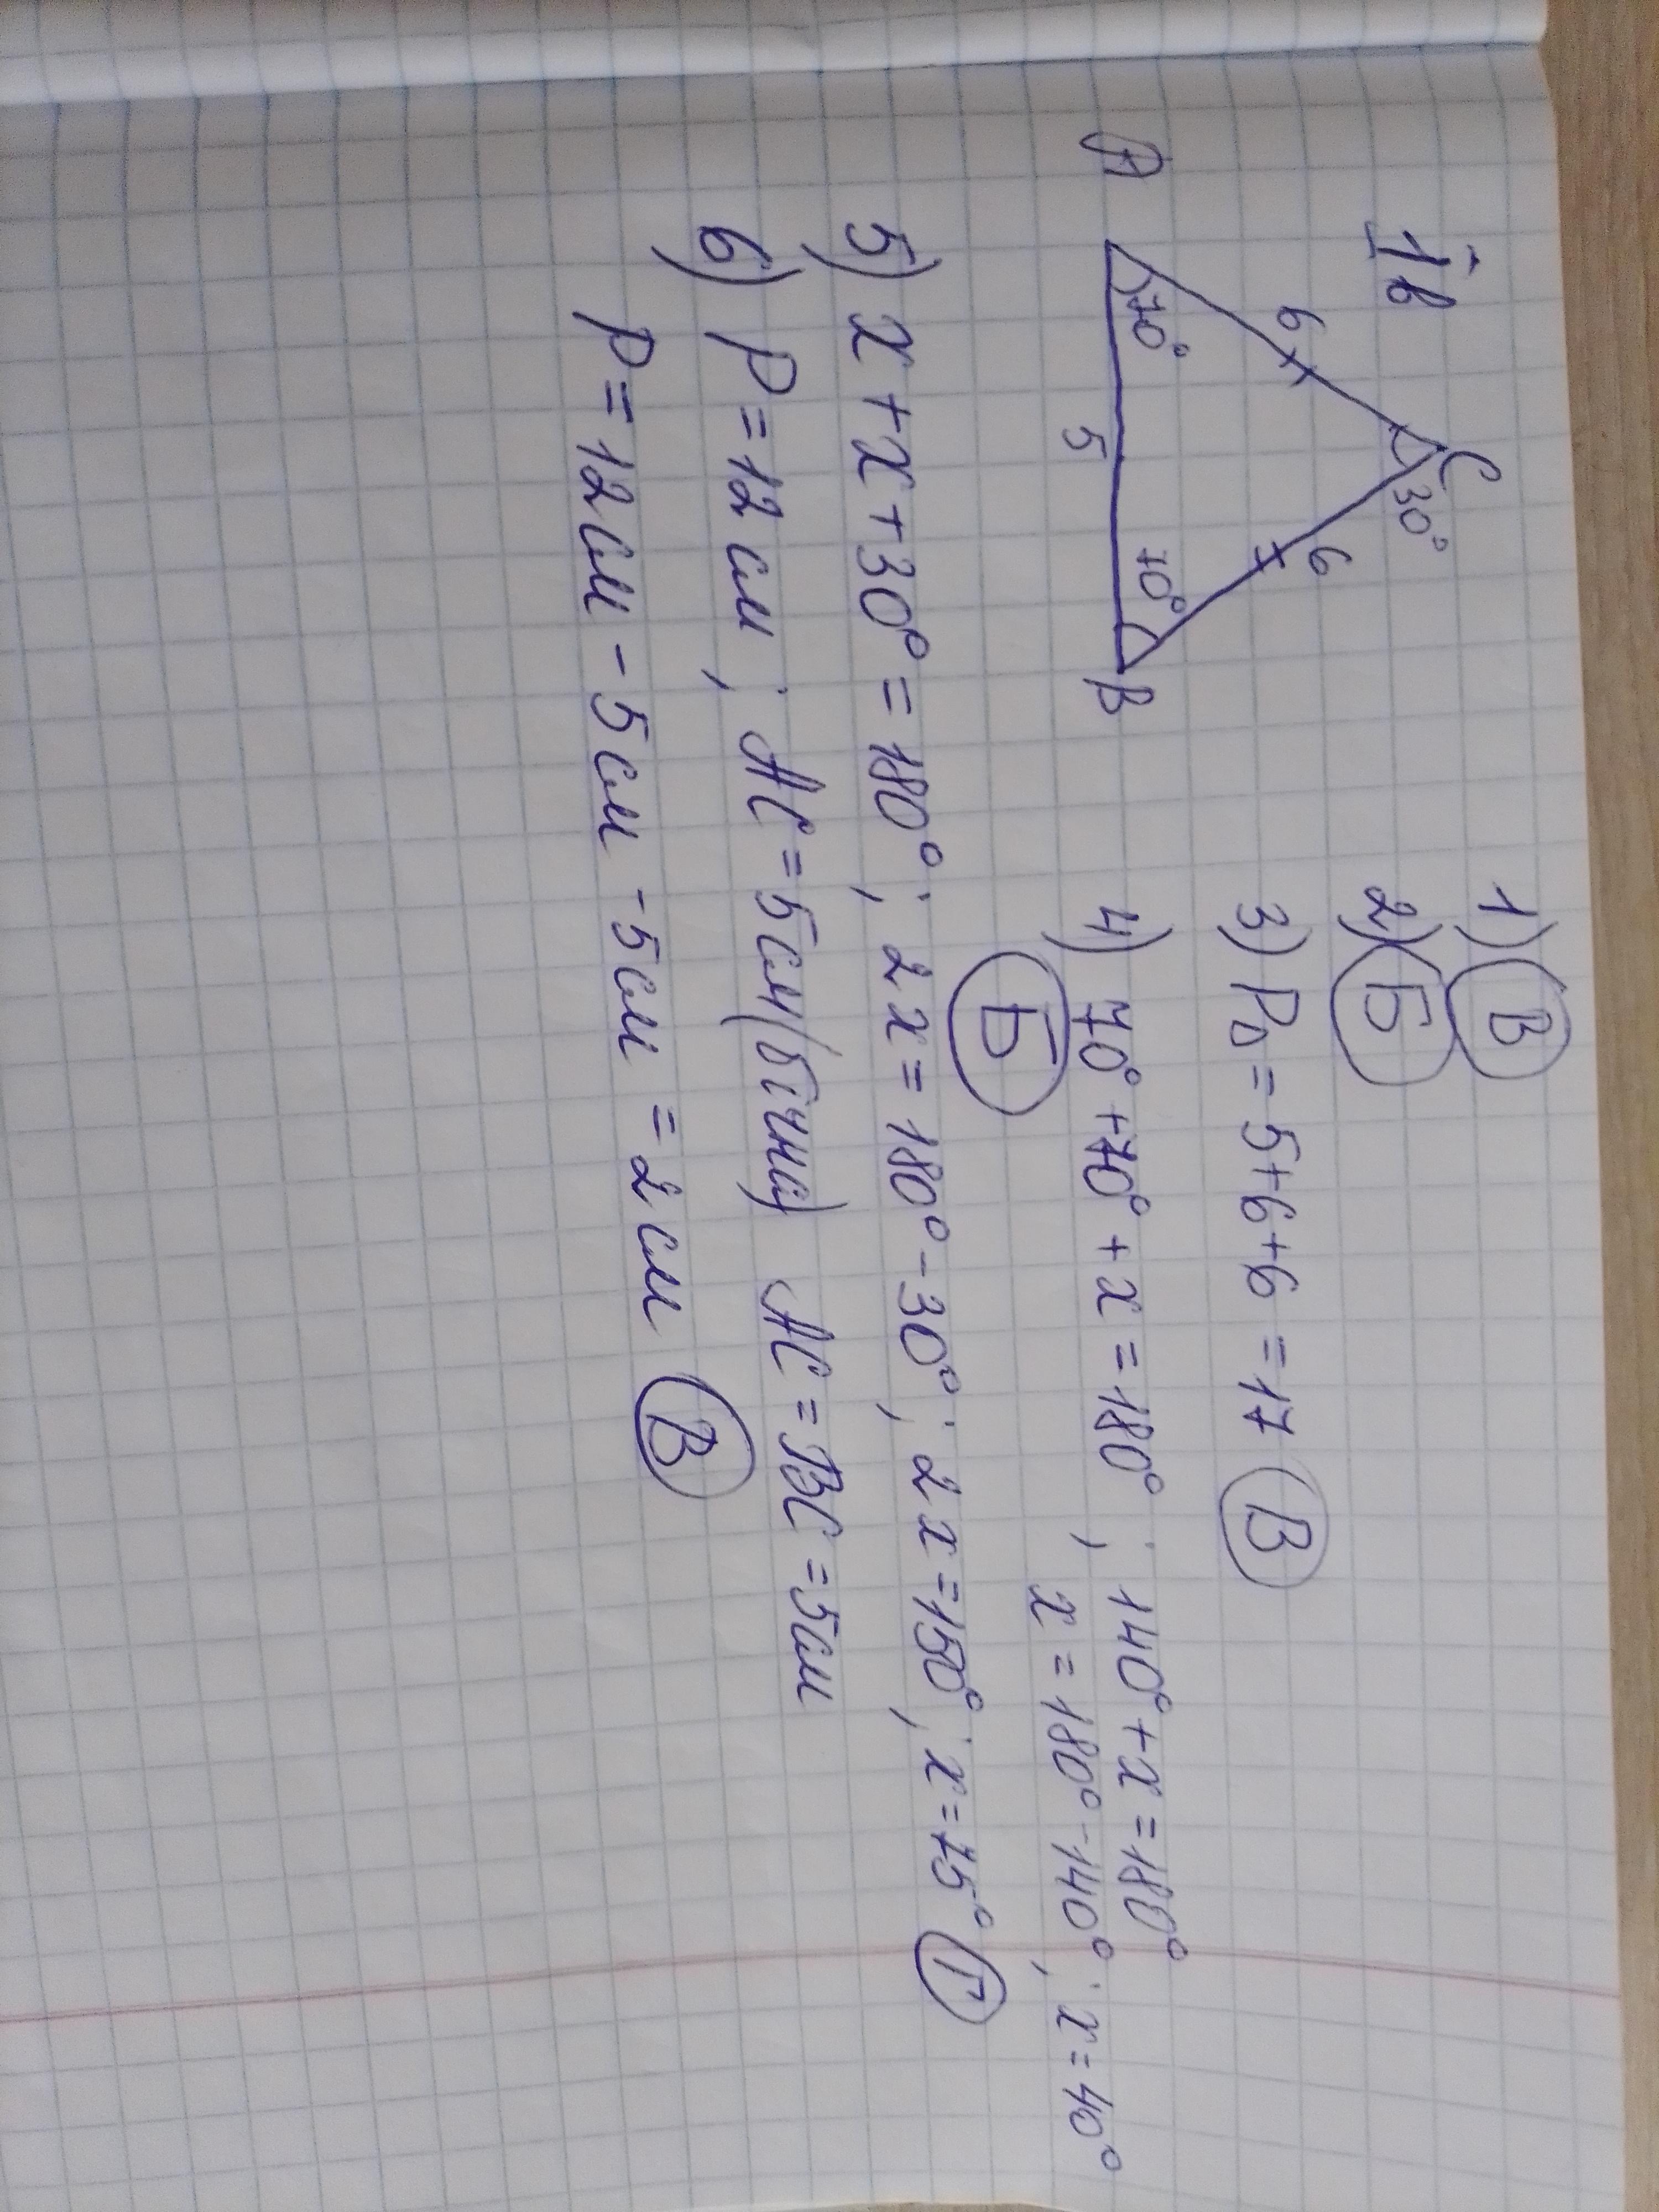 Ів
1) В
2) Б
3) P△ = 5+6+6 = 17 В
4) 70° + 70° + x = 180° ; 140° + x = 180°
Б x = 180° - 140° ; x = 40°
C
30°
6 6
70° 70°
A 5 B
5) x + x + 30° = 180° ; 2x = 180° - 30° ; 2x = 150° ; x = 75° Г
6) P = 12 см ; AC = 5 см (бічна) AC = BC = 5 см
P = 12 см - 5 см - 5 см = 2 см В